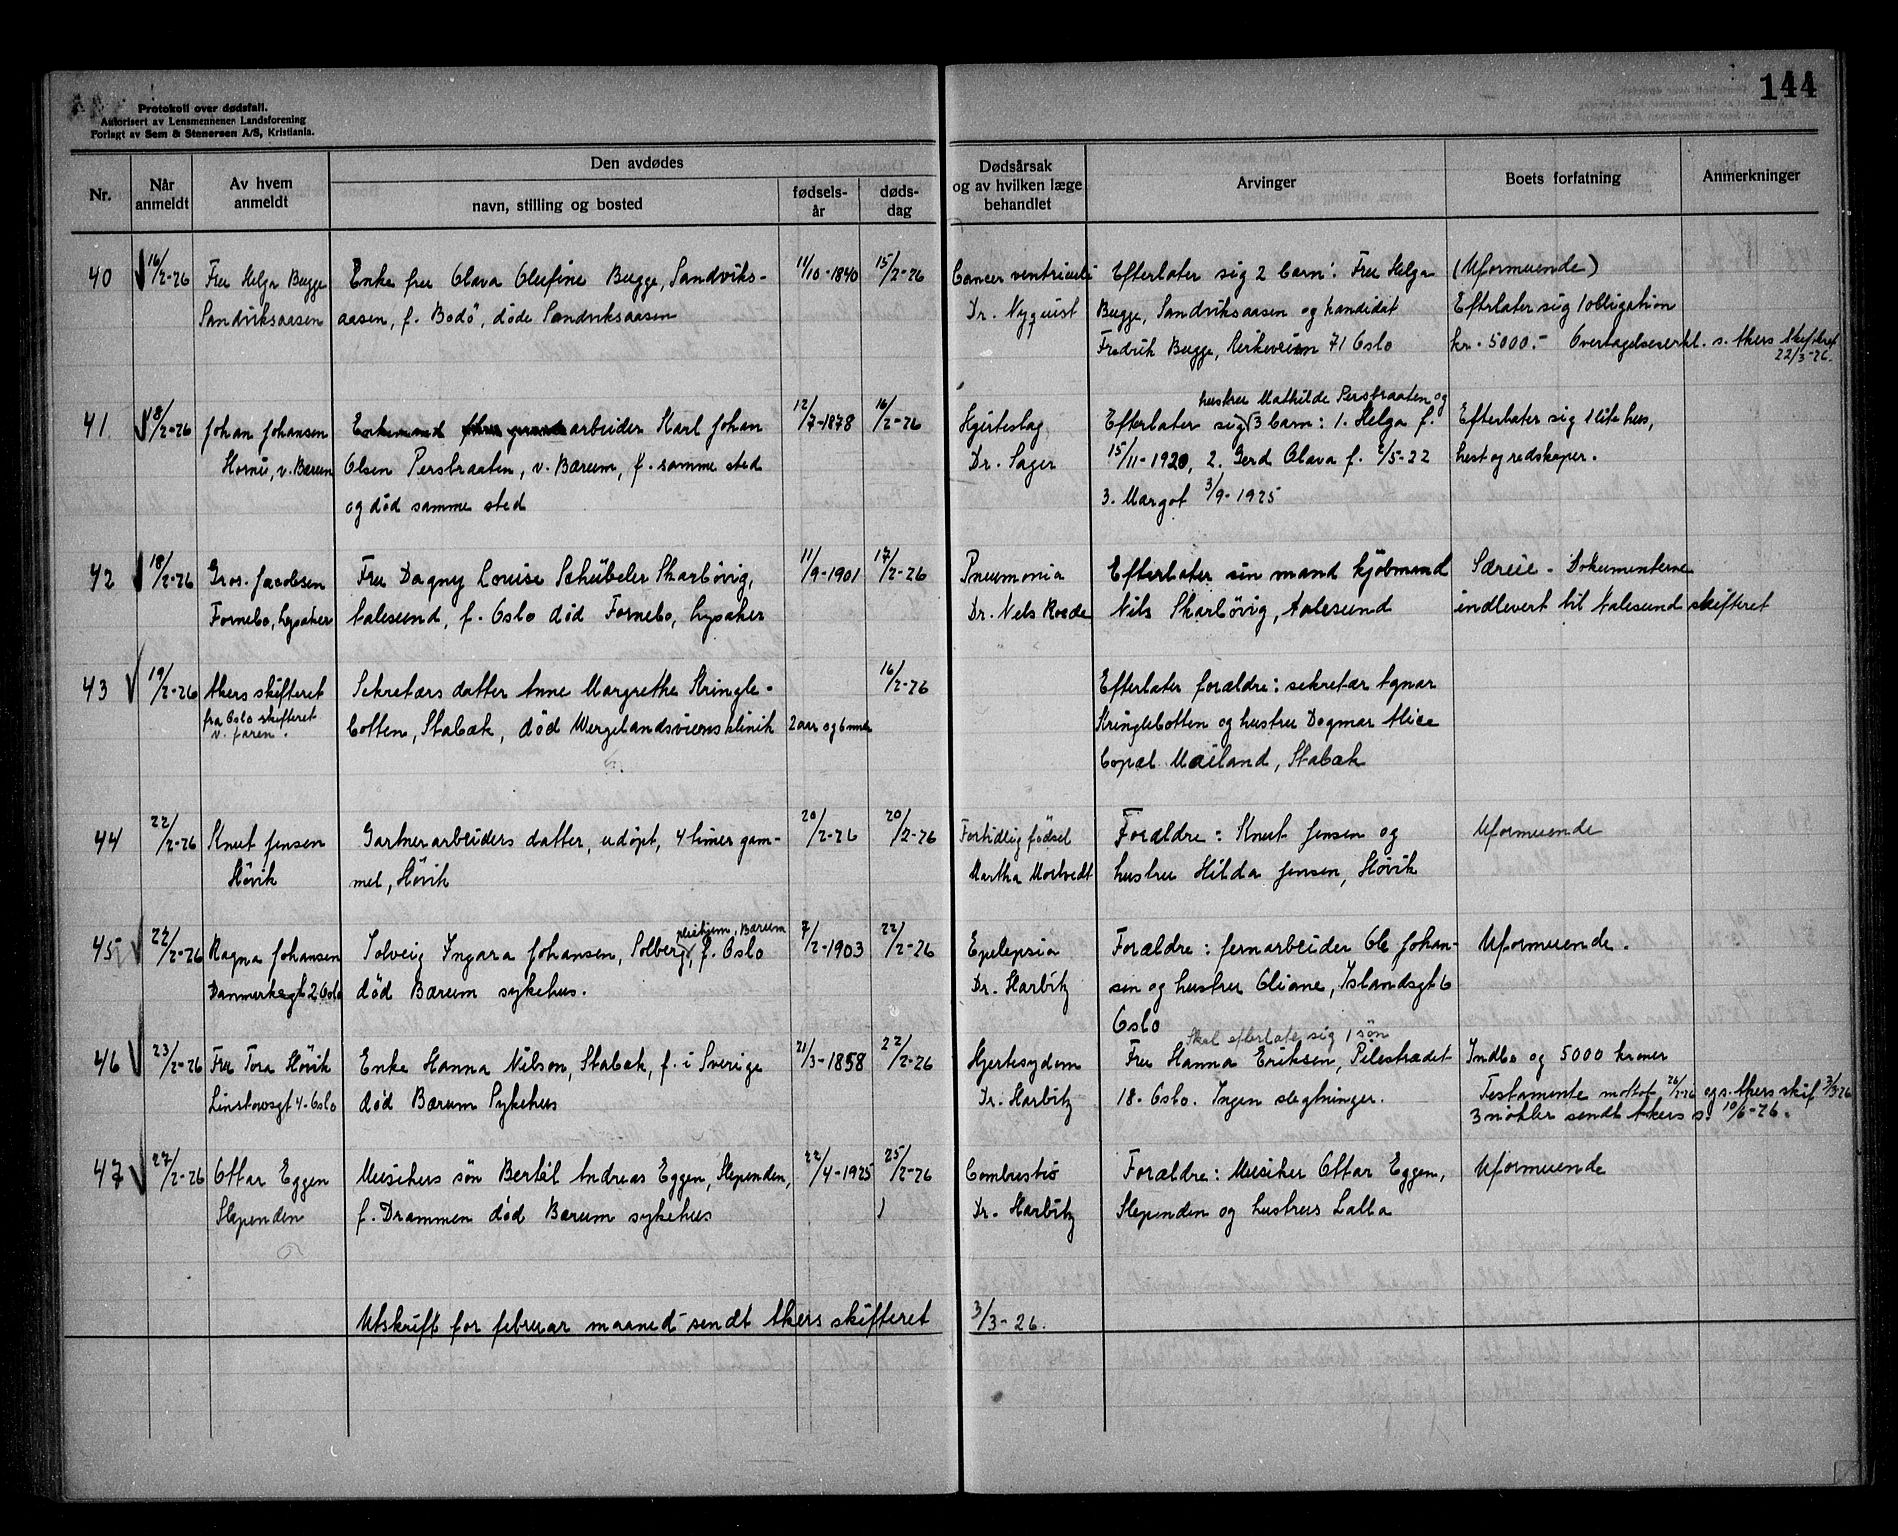 144
Protokoll over dødsfall.
Autorisert av Lensmennenes Landsforening
Forlagt av Sem & Stenersen A/S, Kristiania.
Nr.
Når anmeldt
Av hvem anmeldt
Den avdødes
navn, stilling og bosted
fødsels-år
døds-dag
Dødsårsak og av hvilken læge behandlet
Arvinger
Boets forfatning
Anmerkninger
40 16/2-26
Fru Helga Bugge
Sandviksaasen
Enke fru Olava Olufine Bugge, Sandviks-
aasen, f. Bodö, döde Sandviksaasen
11/10-1840 15/2-26
Cancer ventriculi
Dr. Nyquist
Efterlater sig 2 barn: Fru Helga
Bugge, Sandviksaasen og kandidat
Fredrik Bugge, Kirkeveien 71 Oslo
(Uformuende)
Efterlater sig 1 obligation
kr. 5000.- Overtagelseserkl. s. Akers Skifteret
22/3-26.
41 18/2-26
Johan Johansen
v. Bærum
Enkemand arbeider Karl Johan
Olsen Persbraaten, v. Bærum, f. samme sted
og död samme sted
12/7-1878 16/2-26
Hjerteslag
Dr. Sager
hustru Mathilde Persbraaten og
Efterlater sig 3 barn: 1. Helga f.
15/11-1920, 2. Gerd Olava f. 2/5-22
3. Margot 3/9-1925
Efterlater sig 1 lite hus,
hest og redskaper.
42 18/2-26
Gros. Jacobsen
Fornebo, Lysaker
Fru Dagny Louise Schübeler Skarbövig,
Aalesund, f. Oslo död Fornebo, Lysaker
11/9-1901 17/2-26
Pneumonia
Dr. Nels Roede
Efterlater sin mand kjöbmand
Nils Skarbövig, Aalesund
Særeie - Dokumenterne
indlevert til Aalesund skifteret
43 19/2-26
Akers skifteret
fra Oslo skifteret
v. faren.
Sekretærs datter Anne Margrethe Kringle-
botten, Stabæk, död Wergelandsveiens klinik
2 aar og 6 mndr
16/2-26
Efterlater forældre: sekretær Agnar
Kringlebotten og hustru Dagmar Alice
Copal Mailand, Stabæk
44 22/2-26
Knut Jensen
Hövik
Gartnerarbeiders datter, udöpt, 4 timer gam-
mel, Hövik
20/2-26 20/2-26
Fortidlig födsel
Martha Mortvedt
Forældre: Knut Jensen og
hustru Hilda Jensen, Hövik
Uformuende
45 22/2-26
Ragna Johansen
Danmarksgt 2, Oslo
pleiehjem, Bærum
Solveig Ingara Johansen, Solberg, f. Oslo
död Bærum sykehus.
7/2-1903 22/2-26
Epelepsia
Dr. Harbitz
Forældre: jernarbeider Ole Johan-
sen og hustru Oliane, Islandsgt 6
Oslo
Uformuende.
46 23/2-26
Fru Tora Hövik
Linstowsgt 4 - Oslo
Enke Hanna Nilson, Stabæk, f. i Sverige
död Bærum Sykehus
21/3-1858 22/2-26
Hjertesygdom
Dr. Harbitz
Skal efterlate sig 1 sön
Fru Hanna Eriksen, Pilestrædet
18. Oslo. Ingen slegtninger.
Indbo og 5000 kroner
Testamente mottat 26/2-26 og s. Akers skif. 3/3-26
3 nökler sendt Akers s. 10/6-26.
47 27/2-26
Ottar Eggen
Slependen
Musikers sön Bertil Andreas Eggen, Slependen,
f. Drammen död Bærum sykehus
22/4-1925 25/2-26
Combustio
Dr. Harbitz
Forældre: Musiker Ottar Eggen,
Slependen og hustru Lalla
Uformuende
Utskrift for februar maaned sendt Akers skifteret 3/3-26.